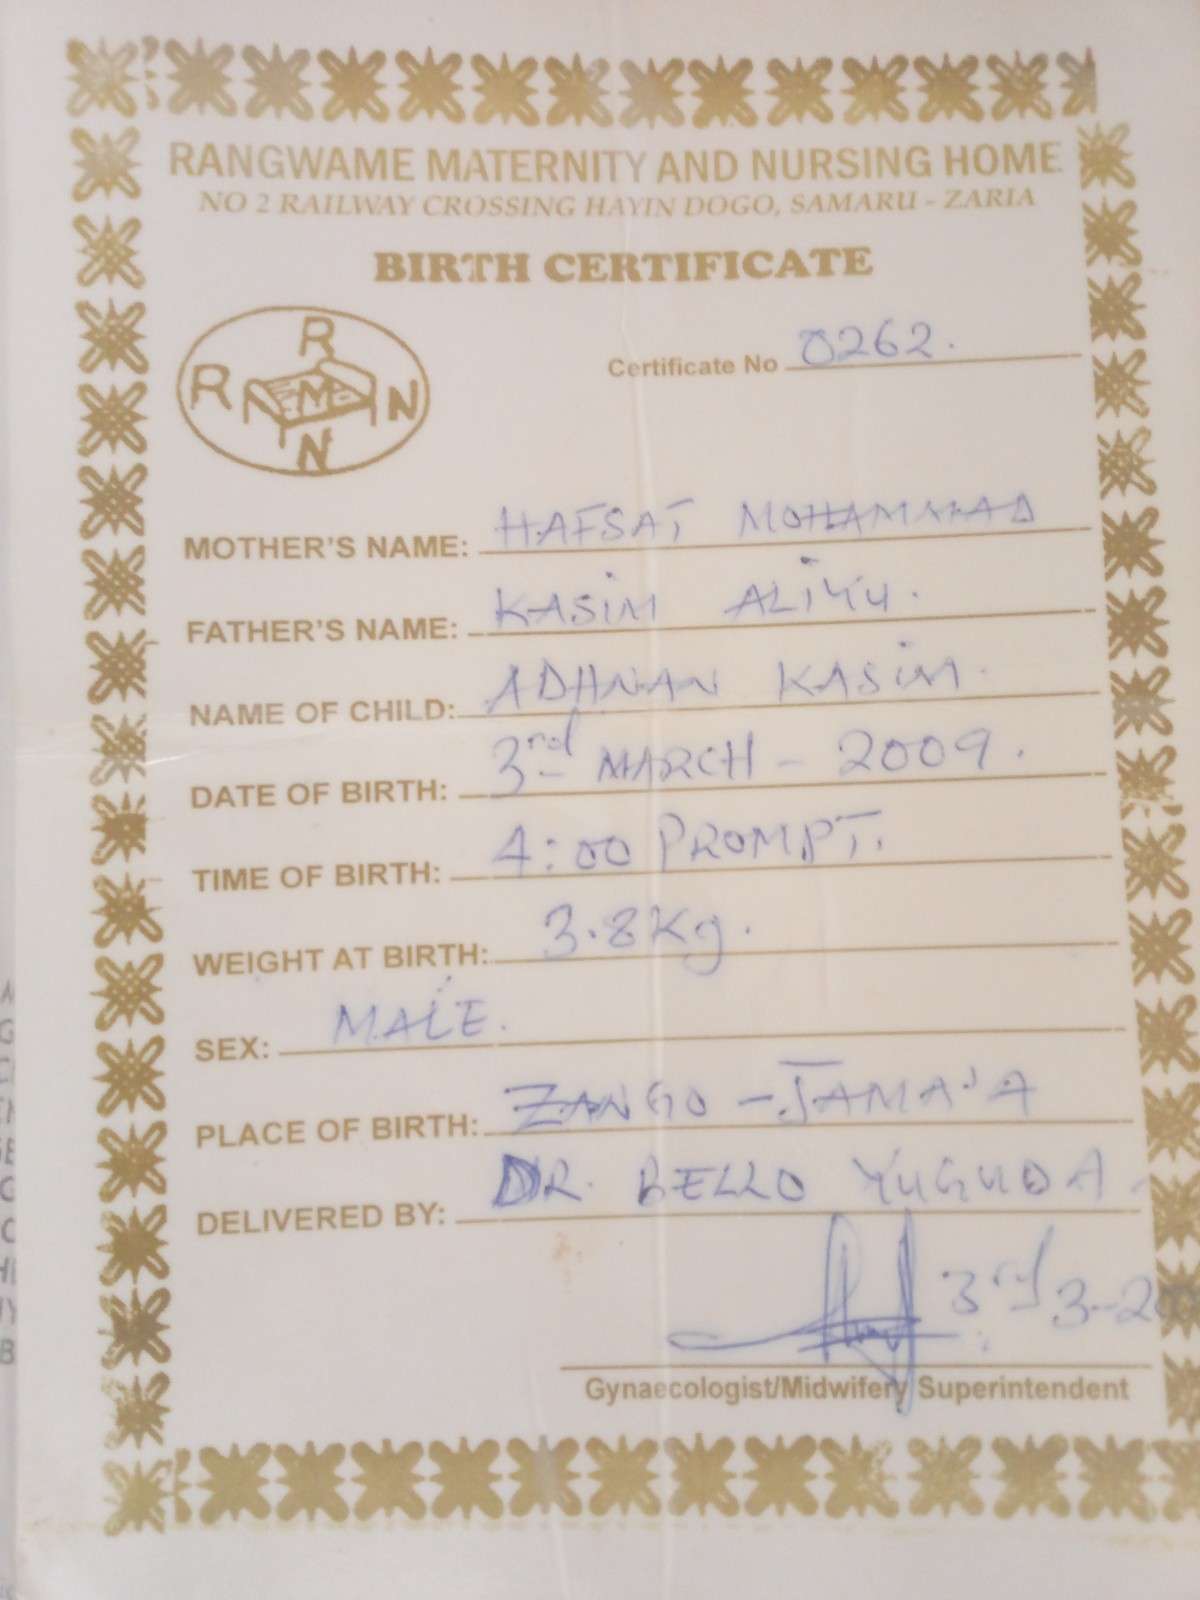 RANGWAME MATERNITY AND NURSING HOME
NO 2 RAILWAY CROSSING HAYIN DOGO, SAMARU - ZARIA
BIRTH CERTIFICATE
Certificate No 0262.
R
R M N
N
MOTHER'S NAME: HAFSAT MOHAMMAD
FATHER'S NAME: KASIM ALIYU.
NAME OF CHILD: ADHNAN KASIM.
DATE OF BIRTH: 3rd MARCH - 2009.
TIME OF BIRTH: 4:00 PROMPT.
WEIGHT AT BIRTH: 3.8Kg.
SEX: MALE.
PLACE OF BIRTH: ZANGO - JAMA'A
DELIVERED BY: DR. BELLO YUGUDA
3rd 3-20
Gynaecologist/Midwifery Superintendent